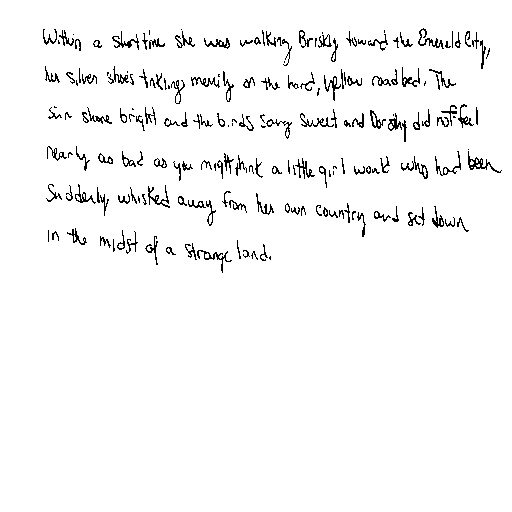 Within a short time she was walking Briskly toward the Emerald City,
her silver shoes tinkling merrily on the hard, yellow roadbed. The
sun shone bright and the birds sang sweet and Dorothy did not feel
nearly as bad as you might think a little girl would who had been
Suddenly whisked away from her own country and set down
in the midst of a strange land.